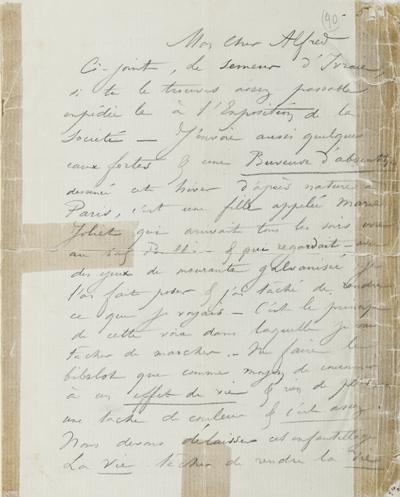 (90)
Mon cher Alfred
Ci-joint, le semeur d'Ivraie,
si tu le trouves assez passable
expédie le à l'Exposition de la
Société — J'envoie aussi quelques
eaux fortes & une Buveuse d'absinthe
dessiné cet hiver d'après nature à
Paris, c'est une fille appelée Marie
Joliet qui arrivait tous les soirs ivre
au bal Bullier & qui regardait avec
des yeux de mourante galvanisée je
l'ai fait poser & j'ai tâché de rendre
ce que je voyais — C'est le principe
de cette voie dans laquelle je vais
tâcher de marcher — Ne faire le
bibelot que comme moyen de concourir
à un effet de vie & rien de plus
une tache de couleur & c'est assez
Nous devons délaisser ces enfantillages
La vie tâcher de rendre la vie